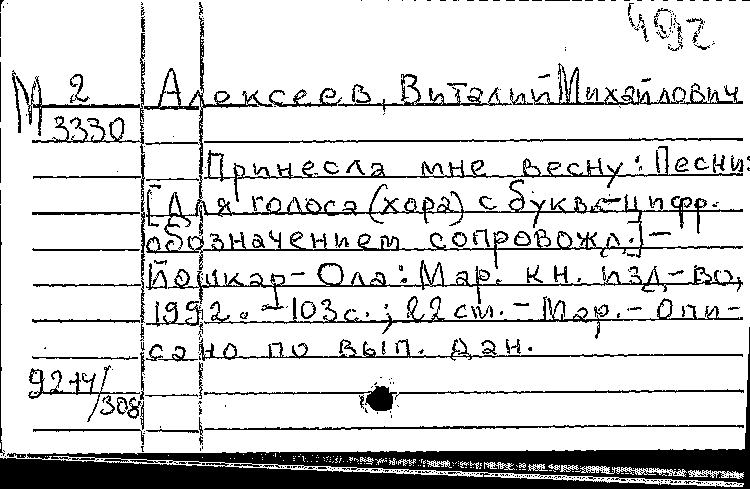 492
М 2
3330
Алексеев, Виталий Михайлович
Принесла мне весну: Песни:
[Для голоса (хора) с букв.-цифр.
обозначением сопровожд.] -
Йошкар-Ола: Мар. кн. изд-во,
1992. - 103 с.; 22 см. - Мар. - Опи-
сано по вып. дан.
9214/308